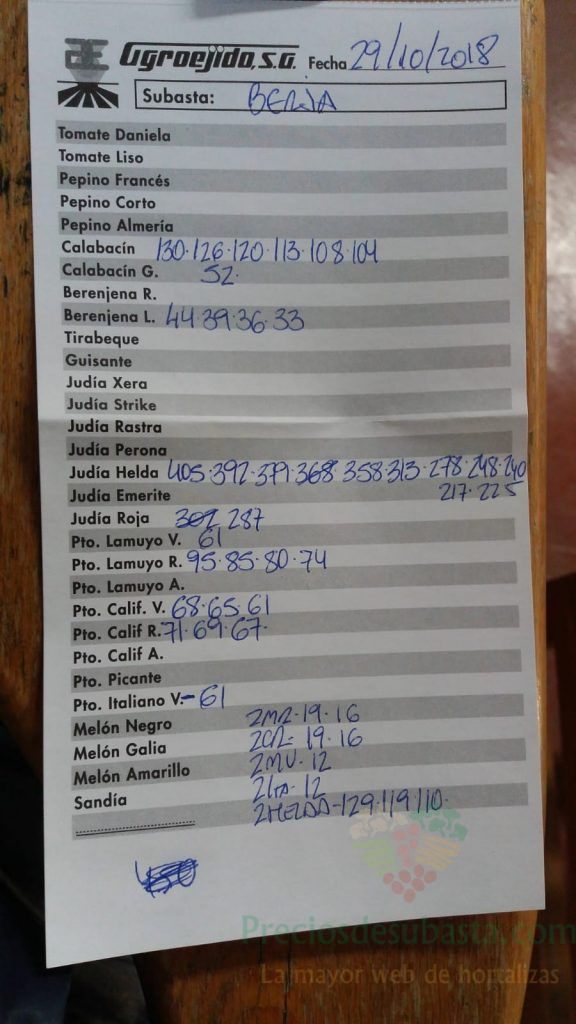 Agroejido, S.A. Fecha 29/10/2018
Subasta: BERJA
Tomate Daniela
Tomate Liso
Pepino Francés
Pepino Corto
Pepino Almería
Calabacín 130·126·120·113·108·104
Calabacín G. 52·
Berenjena R.
Berenjena L. 44·39·36·33
Tirabeque
Guisante
Judía Xera
Judía Strike
Judía Rastra
Judía Perona
Judía Helda 405·392·379·368·358·313·278·248·240
Judía Emerite 217·225
Judía Roja 302 287
Pto. Lamuyo V. 61
Pto. Lamuyo R. 95·85·80·74
Pto. Lamuyo A.
Pto. Calif. V. 68·65·61
Pto. Calif R. 71·69·67·
Pto. Calif A.
Pto. Picante
Pto. Italiano V.-61
Melón Negro 2MR·19·16
Melón Galia 2CR·19·16
Melón Amarillo 2MV·12
Sandía 2ITA·12
2HELDA-129·119·110·
Preciosdesubasta.com
La mayor web de hortalizas